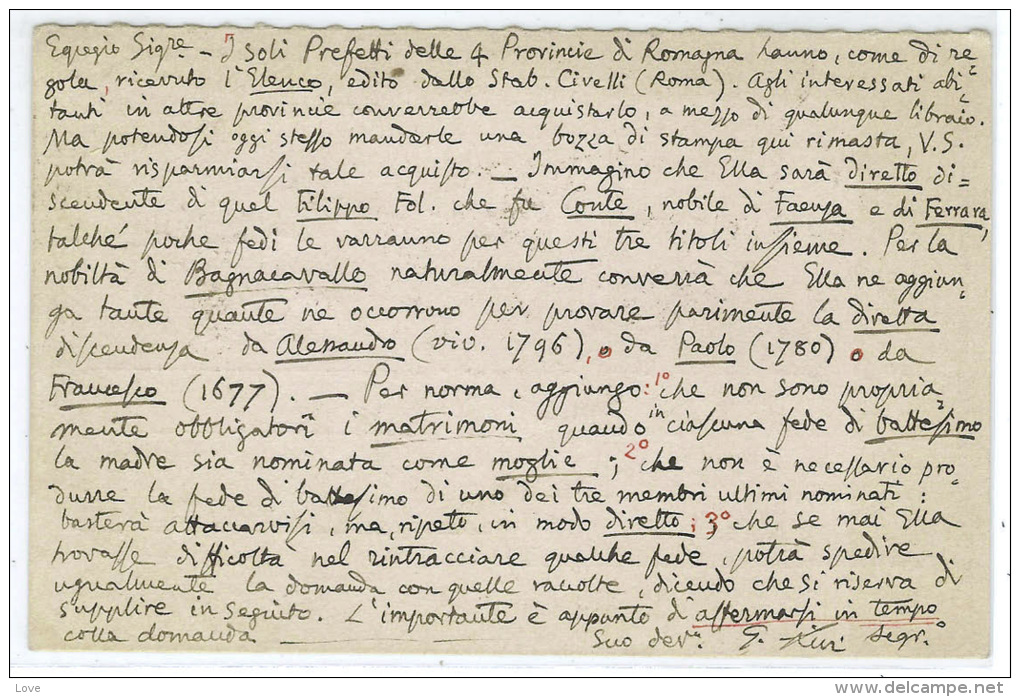 Egregio Sigre – I soli Prefetti delle 4 Provincie di Romagna hanno, come di re
gola, ricevuto l'Elenco, edito dallo Stab. Civelli (Roma). Agli interessati abi=
tanti in altre provincie converrebbe acquistarlo, a mezzo di qualunque libraio.
Ma potendosi oggi stesso mandarle una bozza di stampa qui rimasta, V.S.
potrà risparmiarsi tale acquisto. — Immagino che Ella sarà diretto di=
scendente di quel Filippo Fol. che fu Conte, nobile di Faenza e di Ferrara,
talché poche fedi le varranno per questi tre titoli insieme. Per la
nobiltà di Bagnacavallo naturalmente converrà che Ella ne aggiun=
ga tante quante ne occorrono per provare parimente la diretta
discendenza da Alessandro (viv. 1796), o da Paolo (1780) o da
Francesco (1677). — Per norma, aggiungo: 1° che non sono propria
mente obbligatorî i matrimoni quando in ciascuna fede di battesimo
la madre sia nominata come moglie; 2° che non è necessario pro=
durre la fede di battesimo di uno dei tre membri ultimi nominati:
basterà attaccarvisi, ma, ripeto, in modo diretto; 3° che se mai Ella
trovasse difficoltà nel rintracciare qualche fede, potrà spedire
ugualmente la domanda con quelle raccolte, dicendo che si riserva di
supplire in seguito. L'importante è appunto d'affermarsi in tempo
colla domanda — Suo dev.° G. segr.°
Love www.delcampe.net